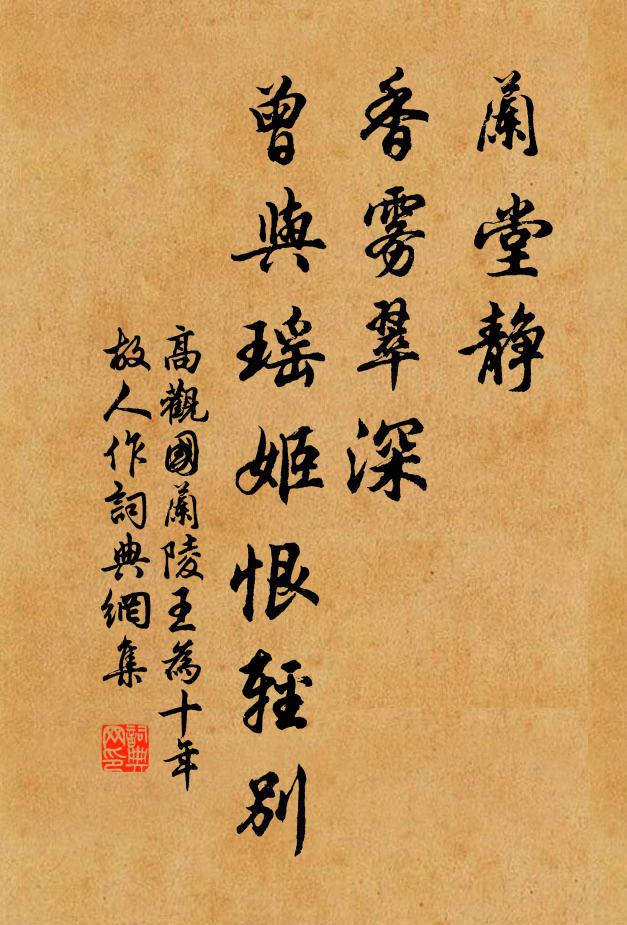 蘭堂静
香雾翠深
曾與瑶姬恨輕别
高觀國蘭陵王為十年
故人作詞典網集
詞典網印